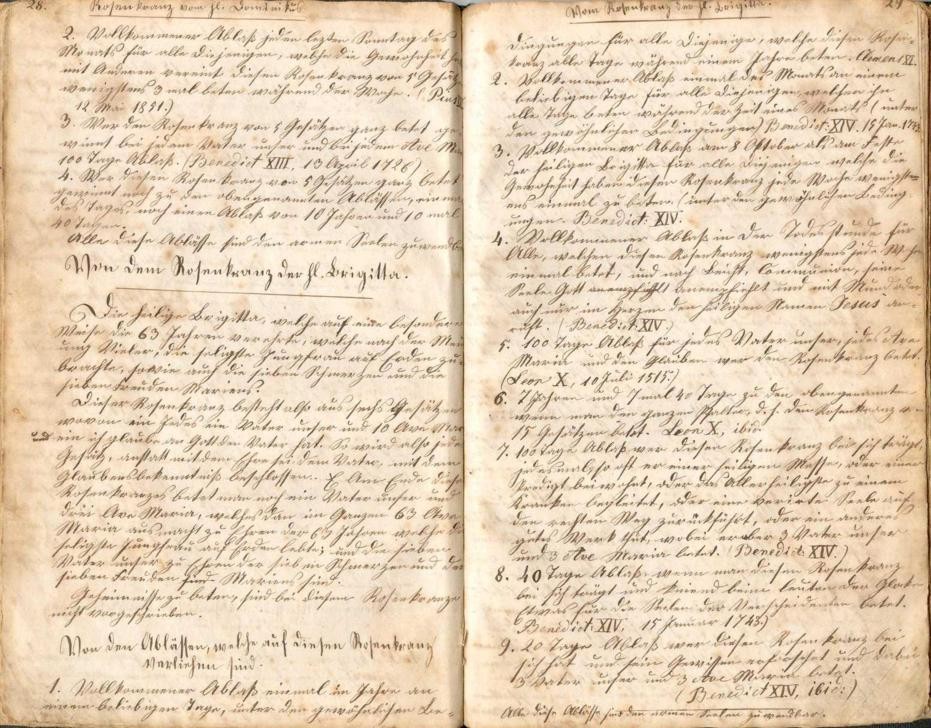 28. Rosenkranz vom hl. Dominikus
2. Vollkommener Ablaß jeden letzten Sonntag des
Monats für alle Diejenigen, welche die Gewohnheit h
mit Anderen vereint diesen Rosenkranz von 5 Gesätz
wenigstens 3 mal beten während der Woche. (Pius IX
12 Mai 1851.)
3. Wer den Rosenkranz von 5 Gesätzen ganz betet ge-
winnt bei jedem Vater unser und bei jedem Ave Mar
100 Tage Ablaß. (Benedict XIII, 13 April 1726)
4. Wer diesen Rosenkranz von 5 Gesätzen ganz betet
gewinnt noch zu den obengenannten Ablässen, einma
des Tages, noch einen Ablaß von 10 Jahren und 10 mal
40 Tagen.
Alle diese Ablässe sind den armen Seelen zuwendb
Von dem Rosenkranz der hl. Brigitta.
Die heilige Brigitta, welche auf eine besondere
Weise die 63 Jahren verehrte, welche nach der Mei
nung Vieler, die seligste Jungfrau auf Erden zu-
brachte, sowie auch die sieben Schmerzen und die
sieben Freuden Mariens.
Dieser Rosenkranz besteht also aus sechs Gesätzen
wovon ein Jedes ein Vater unser und 10 Ave Mar
und ein ich glaube an Gott den Vater hat. So wird also jedes
Gesätz, anstatt mit dem Ehre sei dem Vater, mit dem
Glaubensbekenntniß beschlossen. Am Ende dieses
Rosenkranzes betet man noch ein Vater unser und
drei Ave Maria, welches dan im Ganzen 63 Ave
Maria ausmacht zu Ehren der 63 Jahren welche d
seligste Jungfrau auf Erden lebte; und die sieben
Vater unser zu Ehren der sieben Schmerzen und der
sieben Freuden Mariens sind.
Geheimnisse zu beten, sind bei diesem Rosenkranze
nicht vorgeschrieben.
Von den Ablässen, welche auf diesen Rosenkranz
verliehen sind.
1. Vollkommener Ablaß einmal im Jahre an
einem beliebigen Tage, unter den gewöhnlichen Be-
Vom Rosenkranz der hl. Brigitta. 29
dingungen für alle Diejenige, welche diesen Rosen-
kranz alle Tage während einem Jahre beten. Clemens XI.
2. Vollkommener Ablaß einmal des Monats an einem
beliebigen Tage für alle Diejenigen, welchen ihn
alle Tage beten während der Zeit eines Monats (unter
den gewöhnlichen Bedingungen) Benedict XIV. 15 Jan. 1743
3. Vollkommener Ablaß am 8 Oktober als am Feste
der heiligen Brigitta für alle Diejenigen welche die
Gewohnheit haben diesen Rosenkranz jede Woche wenigst-
ens einmal zu beten. (unter den gewöhnlichen Beding
ungen. Benedict XIV.
4. Vollkommener Ablaß in der Todesstunde für
Alle, welchen diesen Rosenkranz wenigstens jede Woche
einmal betet, und nach Beicht, Communion, seine
Seele Gott anempfiehlt und mit Mund oder
auch nur im Herzen den heiligen Namen Jesus an-
ruft. (Benedict XIV.)
5. 100 Tage Ablaß für jedes Vater unser, jedes Ave
Maria und den Glauben wer den Rosenkranz betet.
(Leon X, 10 Juli 1515.)
6. 7 Jahren und 7 mal 40 Tage zu den obengenannten
wenn man den ganzen Psalter, d. h. den Rosenkranz von
15 Gesätzen betet. Leon X, ibid.
7. 100 Tage Ablaß wer diesen Rosenkranz bei sich trägt,
jedesmal, so oft er einer heiligen Messe, oder einer
Predigt beiwohnt, oder das Allerheiligste zu einem
Kranken begleitet, oder eine verirrte Seele auf
den rechten Weg zurückführt, oder ein anderes
gutes Werk thut, wobei er aber 3 Vater unser
und 3 Ave Maria betet. (Benedict XIV.)
8. 40 Tage Ablaß wenn man diesen Rosenkranz
bei sich tragt und knieend beim leuten der Glocke
etwas für die Seelen der Verscheidenten betet.
Benedict XIV, 15 Januar 1743)
9. 20 Tage Ablaß wer diesen Rosenkranz bei
sich hat und sein Gewissen erforscht und dabei
3 Vater unser und 3 Ave Maria betet.
(Benedict XIV, ibid.)
Alle diese Ablässe sind den armen Seelen zuwendbar.